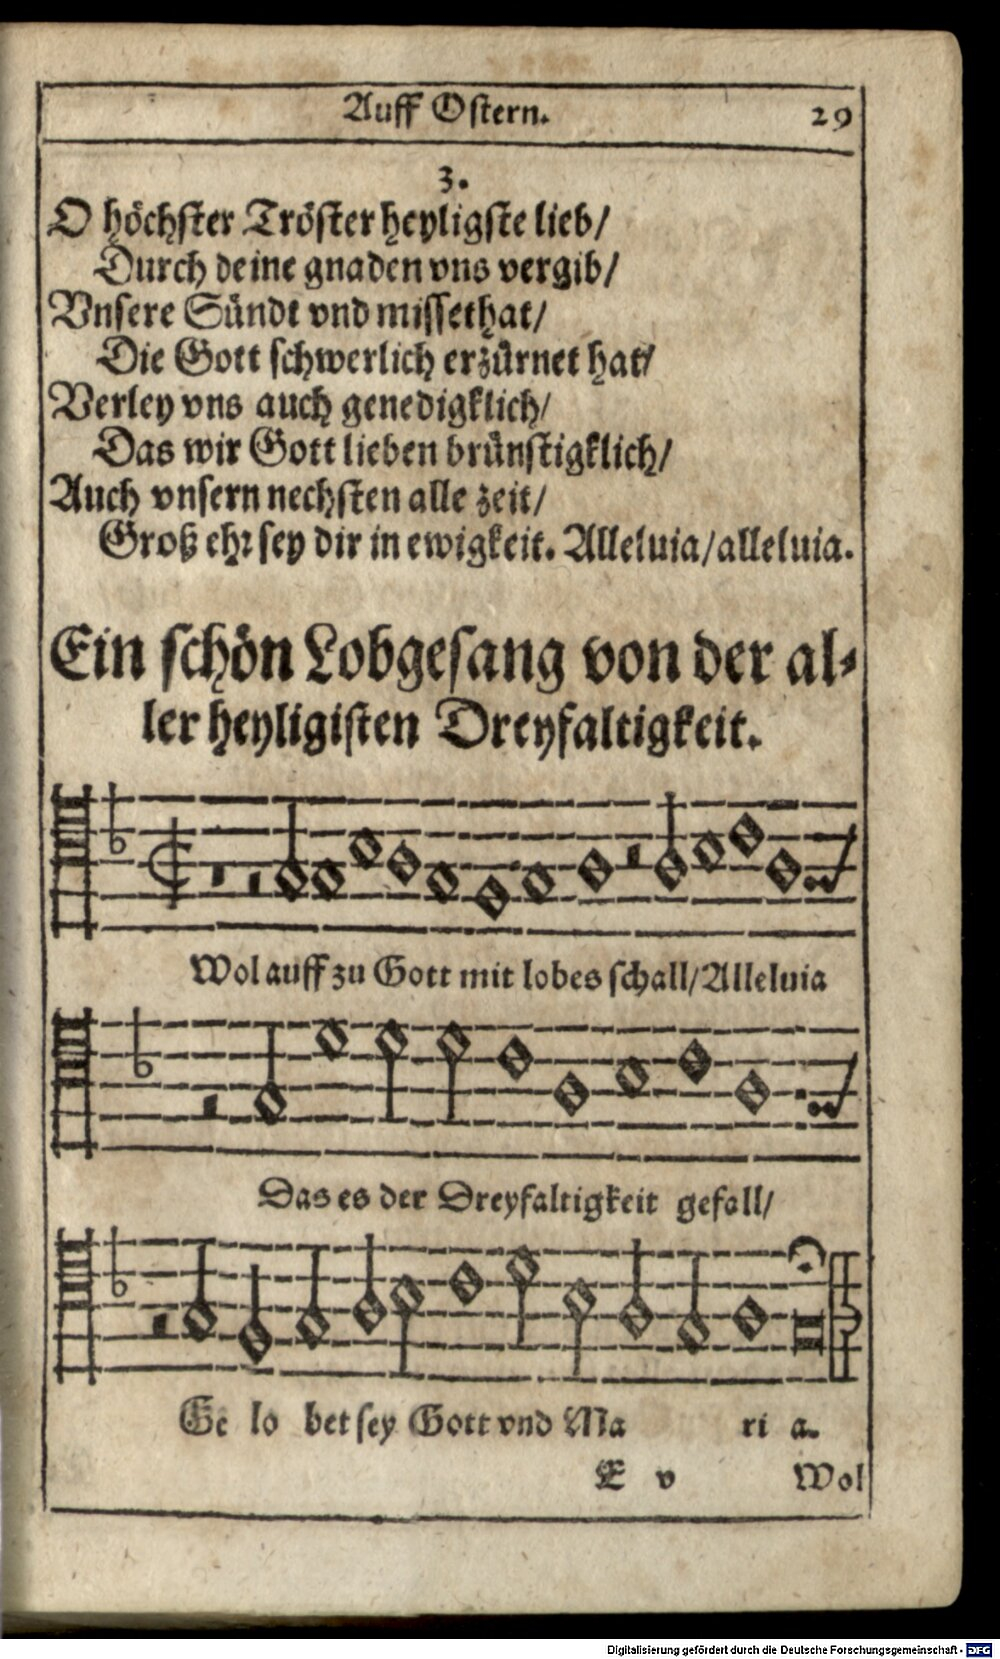 Auff Ostern. 29
3.
O höchster Tröster heyligste lieb/
Durch deine gnaden vns vergib/
Vnsere Sündt vnd missethat/
Die Gott schwerlich erzürnet hat/
Verley vns auch genedigklich/
Das wir Gott lieben brünstigklich/
Auch vnsern nechsten alle zeit/
Groß ehr sey dir in ewigkeit. Alleluia/alleluia.
Ein schön Lobgesang von der al-
ler heyligisten Dreyfaltigkeit.
Wol auff zu Gott mit lobes schall/Alleluia
Das es der Dreyfaltigkeit gefall/
Ge lo bet sey Gott vnd Ma ri a.
E v Wol
Digitalisierung gefördert durch die Deutsche Forschungsgemeinschaft - DFG